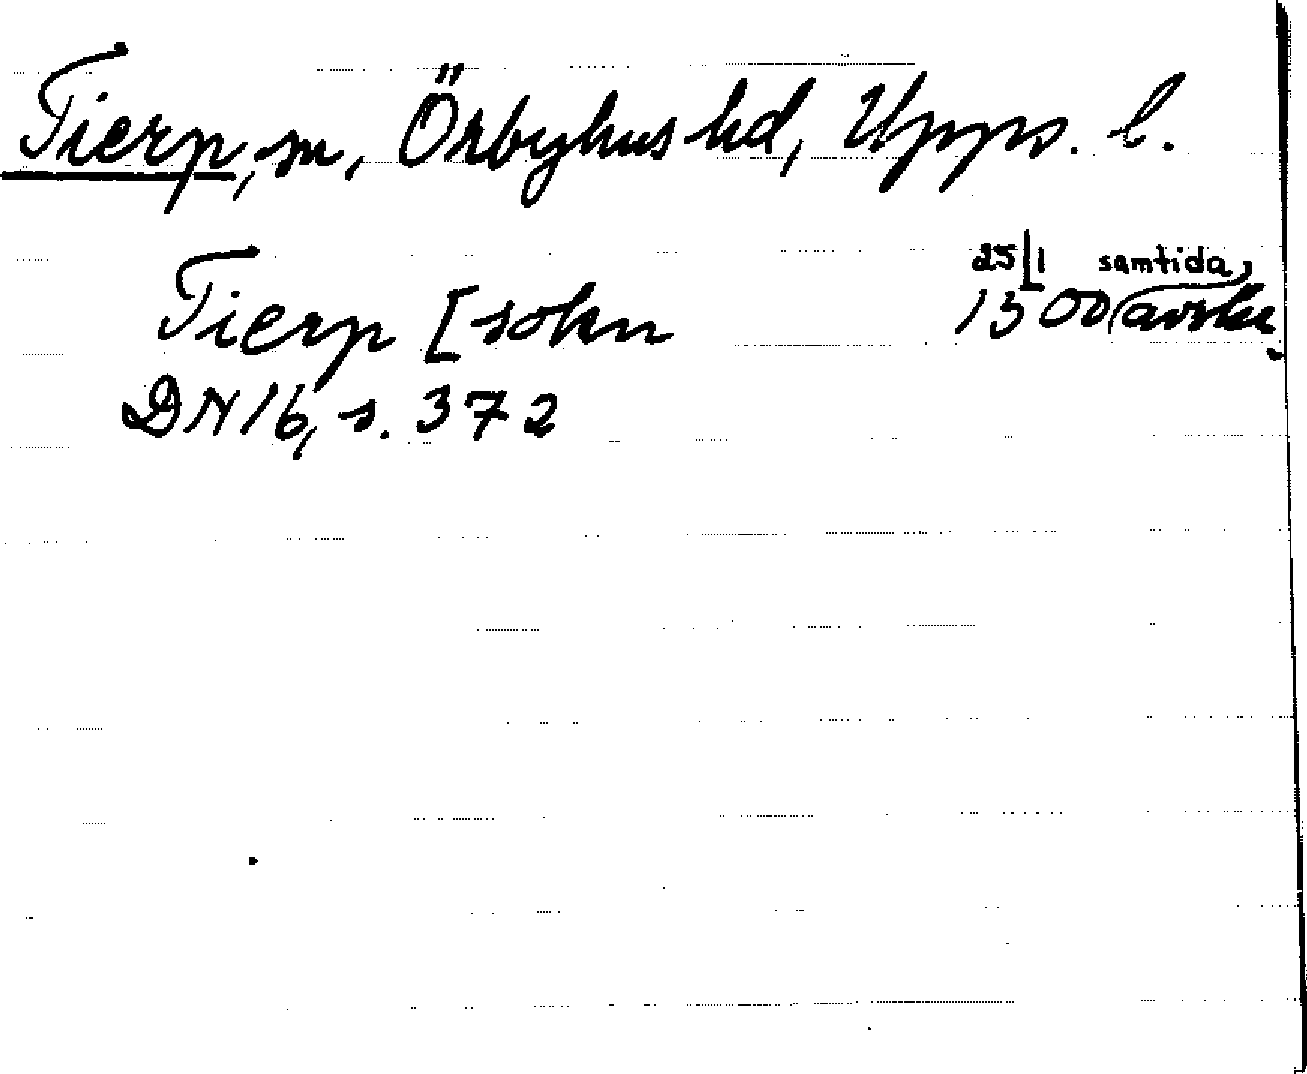 Tierp, sn, Örbyhus hd, Upps. l.
Tierp [sokn 25/1 1500 (samtida avskr.
DN 16, s. 372